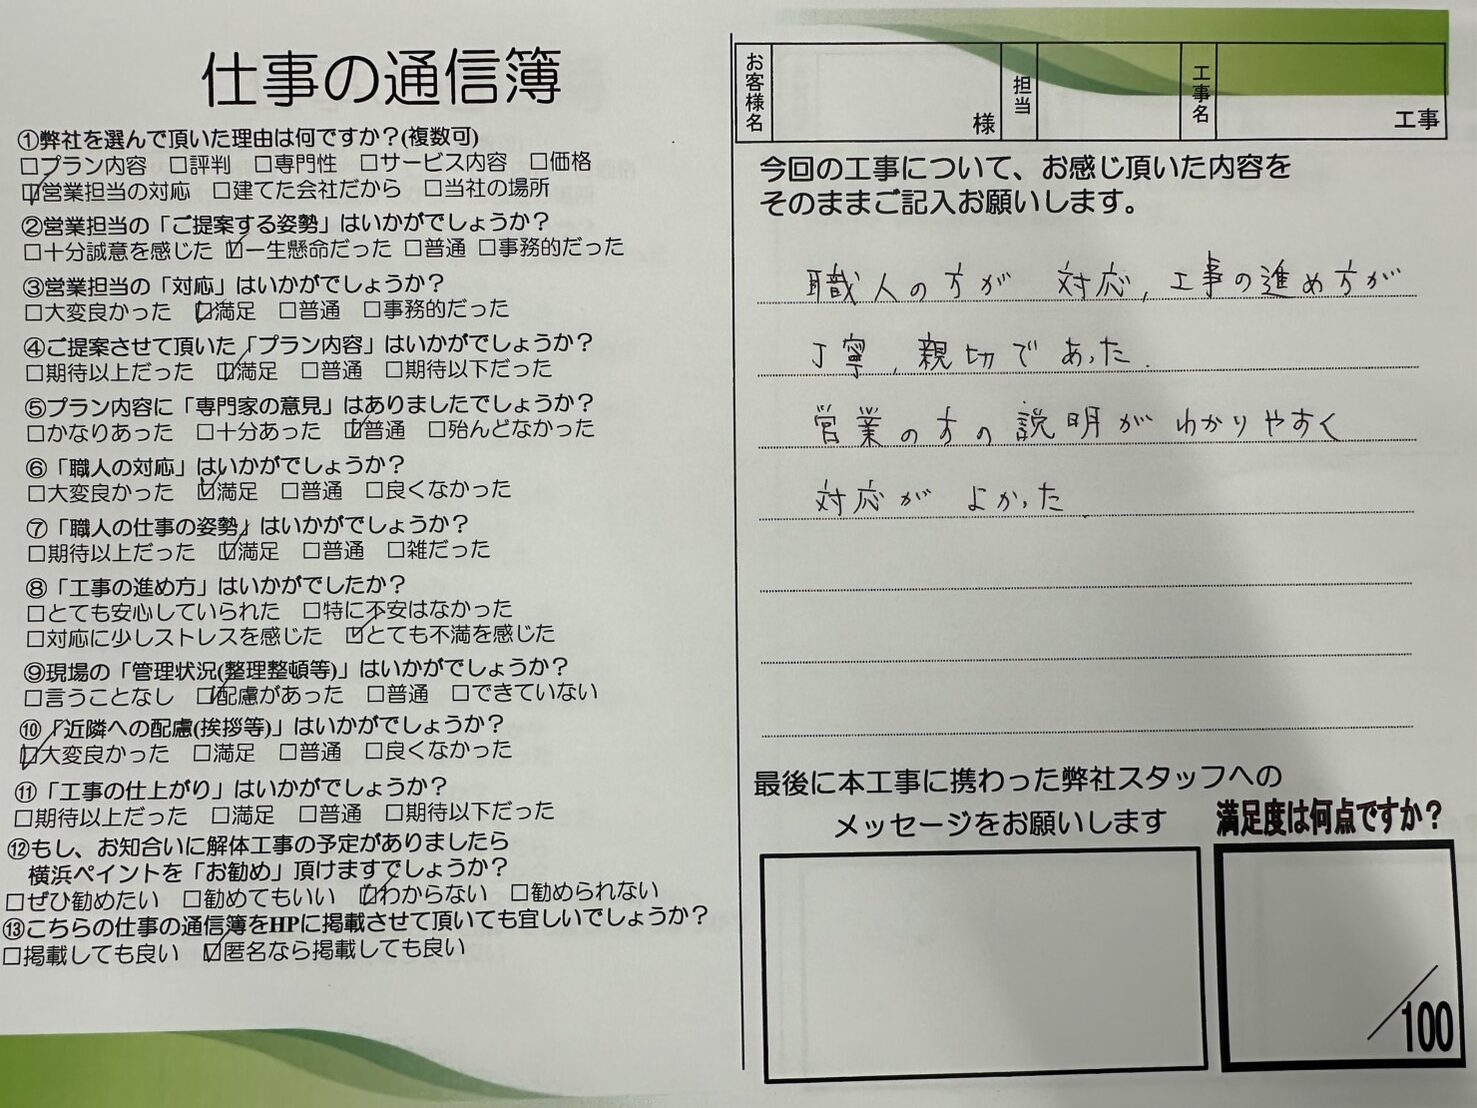 仕事の通信簿
①弊社を選んで頂いた理由は何ですか？(複数可)
□プラン内容 □評判 □専門性 □サービス内容 □価格
☑営業担当の対応 □建てた会社だから □当社の場所
②営業担当の「ご提案する姿勢」はいかがでしょうか？
□十分誠意を感じた ☑一生懸命だった □普通 □事務的だった
③営業担当の「対応」はいかがでしょうか？
□大変良かった ☑満足 □普通 □事務的だった
④ご提案させて頂いた「プラン内容」はいかがでしょうか？
□期待以上だった ☑満足 □普通 □期待以下だった
⑤プラン内容に「専門家の意見」はありましたでしょうか？
□かなりあった □十分あった ☑普通 □殆んどなかった
⑥「職人の対応」はいかがでしょうか？
□大変良かった ☑満足 □普通 □良くなかった
⑦「職人の仕事の姿勢」はいかがでしょうか？
□期待以上だった ☑満足 □普通 □雑だった
⑧「工事の進め方」はいかがでしたか？
□とても安心していられた □特に不安はなかった
□対応に少しストレスを感じた ☑とても不満を感じた
⑨現場の「管理状況(整理整頓等)」はいかがでしょうか？
□言うことなし ☑配慮があった □普通 □できていない
⑩「近隣への配慮(挨拶等)」はいかがでしょうか？
☑大変良かった □満足 □普通 □良くなかった
⑪「工事の仕上がり」はいかがでしょうか？
□期待以上だった □満足 □普通 □期待以下だった
⑫もし、お知合いに解体工事の予定がありましたら
横浜ペイントを「お勧め」頂けますでしょうか？
□ぜひ勧めたい □勧めてもいい ☑わからない □勧められない
⑬こちらの仕事の通信簿をHPに掲載させて頂いても宜しいでしょうか？
□掲載しても良い ☑匿名なら掲載しても良い
お客様名 様 担当 工事名 工事
今回の工事について、お感じ頂いた内容を
そのままご記入お願いします。
職人の方が 対応,工事の進め方が
丁寧,親切であった.
営業の方の説明がわかりやすく
対応が よかった
最後に本工事に携わった弊社スタッフへの
メッセージをお願いします
満足度は何点ですか？
/100